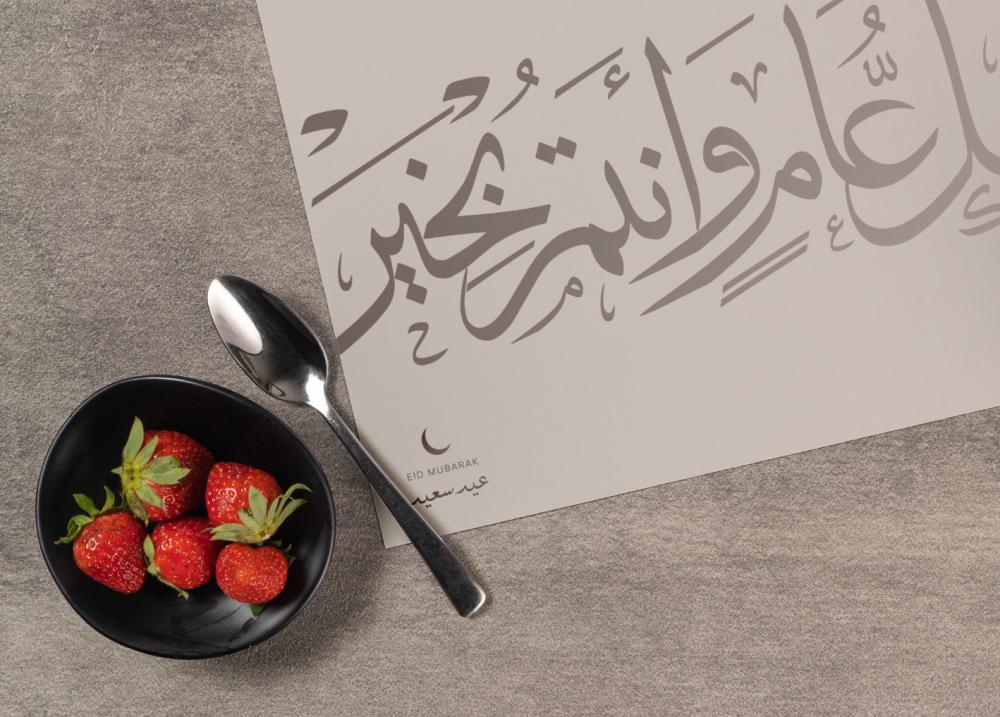 كل عَّامٍ وأنتم بخير
EID MUBARAK
عيد سعيد